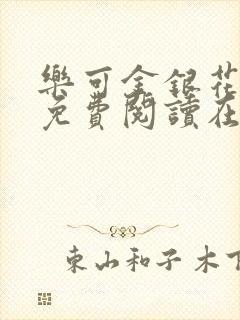 樂可金銀花
免費閱讀在
東山和子木下